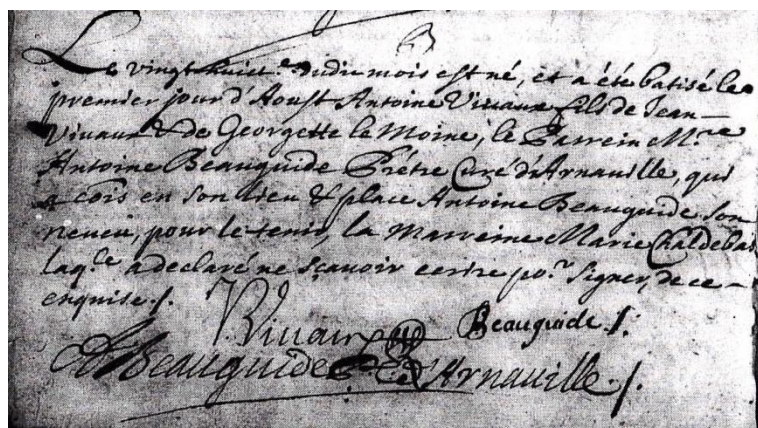 B
Le vingt huict.e dudit mois est né, et a été batisé le
premier jour d'Aoust Antoine Vivaux fils de Jean
Vivaux & de Georgette le Moine, le Parrein M.re
Antoine Beauguide Prétre Curé d'Arnaville, qui
a cõis en son lieu & place Antoine Beauguide son
neveu, pour le tenir, la Marreine Marie Chaldebas
laq.le a declaré ne sçavoir ecrire po.r signer, de ce
enquise ./.
Vivaux Beauguide ./.
A Beauguide C. d'Arnaville ./.